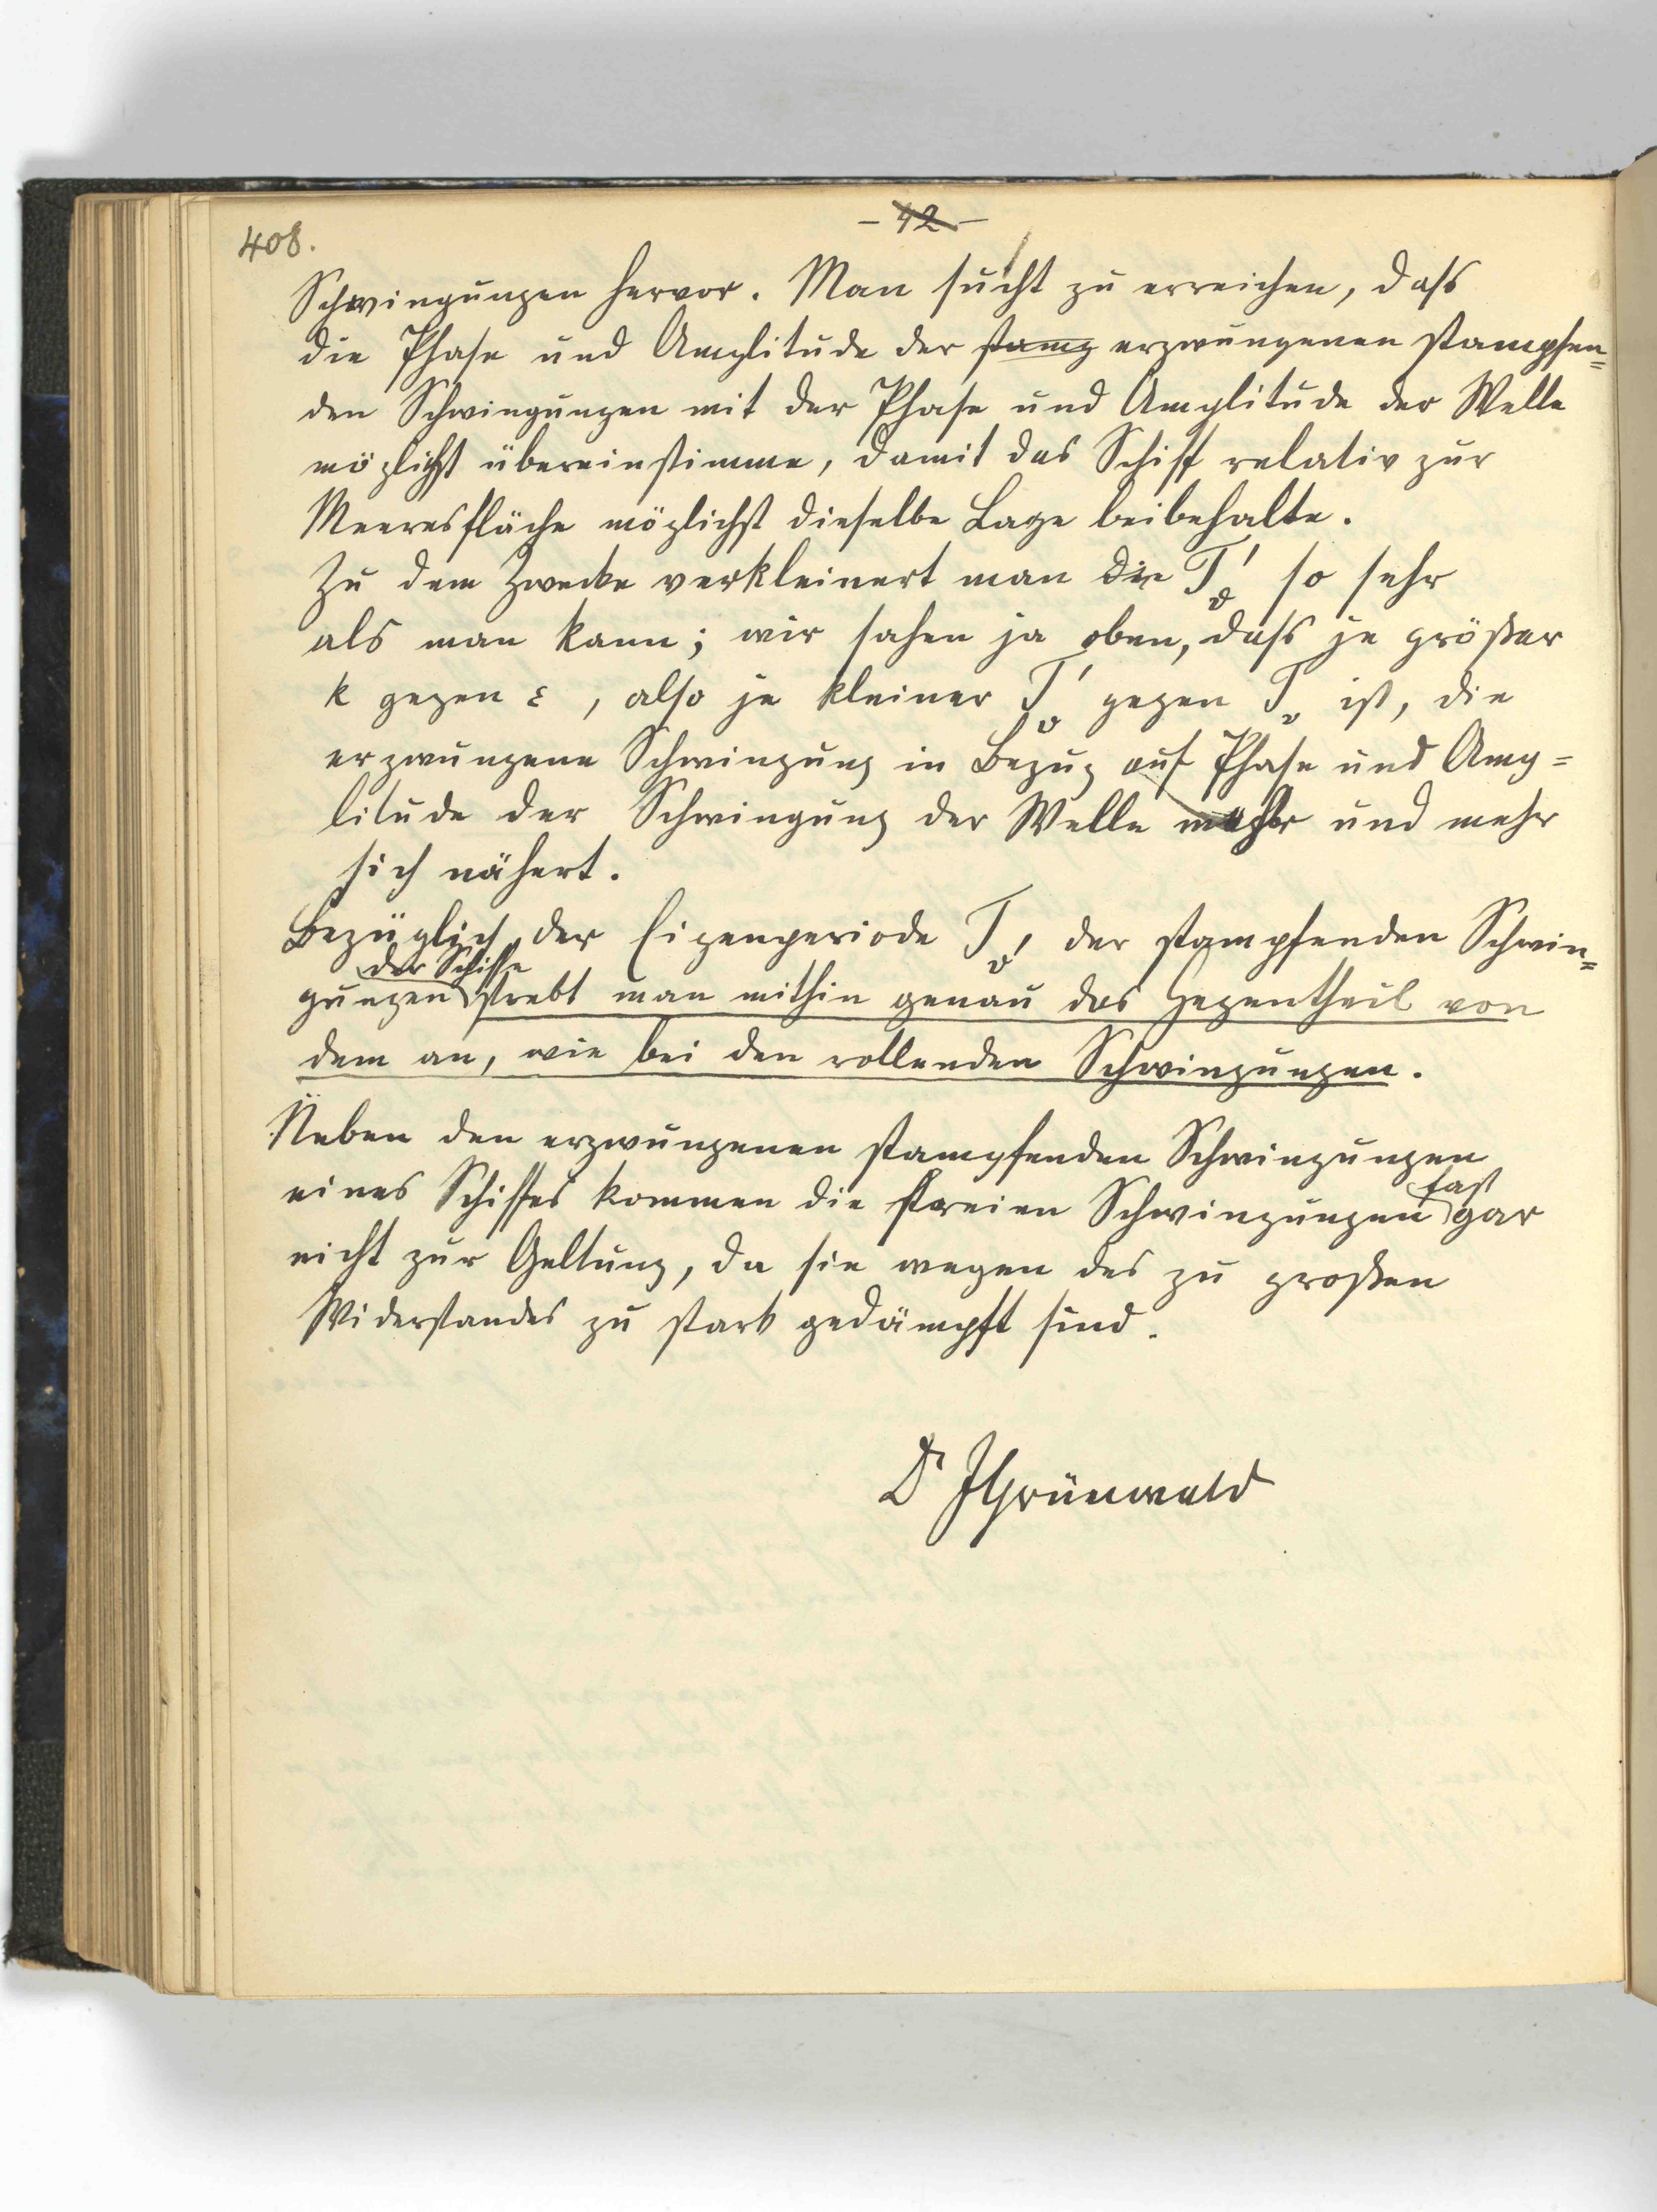 408.
- 42 -
Schwingungen hervor. Man sucht zu erreichen, dass
die Phase und Amplitude der stamp erzwungenen stampfen=
den Schwingungen mit der Phase und Amplitude der Welle
möglichst übereinstimme, damit das Schiff relativ zur
Meeresfläche möglichst dieselbe Lage beibehalte.
Zu dem Zwecke verkleinert man die T₀' so sehr
als man kann; wir sahen ja oben, dass je größer
k gegen ε, also je kleiner T₀' gegen T₀ ist, die
erzwungene Schwingung in Bezug auf Phase und Amp=
litude der Schwingung der Welle mehr und mehr
sich nähert.
Bezüglich der Eigenperiode T₀' der stampfenden Schwin=
der Schiffe
gungen strebt man mithin genau das Gegentheil von
dem an, wie bei den rollenden Schwingungen.
Neben den erzwungenen stampfenden Schwingungen
fast
eines Schiffes kommen die freien Schwingungen gar
nicht zur Geltung, da sie wegen des zu großen
Widerstandes zu stark gedämpft sind.
Dr JGrünwald